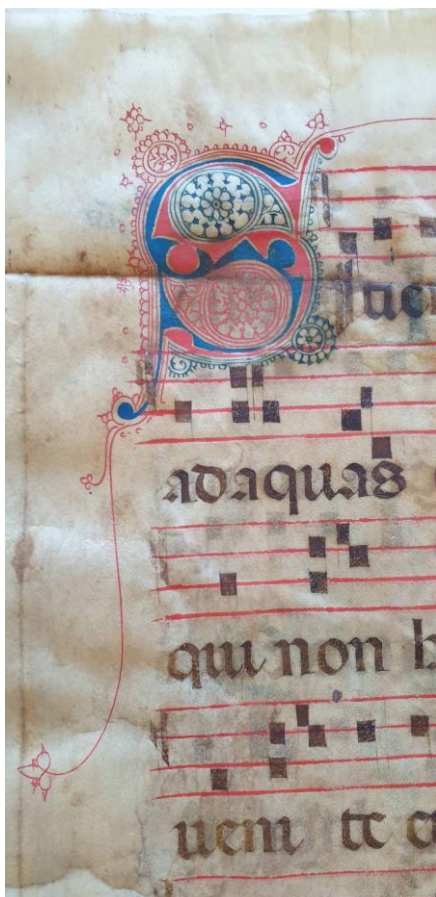 Sitie
adaquas
qui non h
ueni te